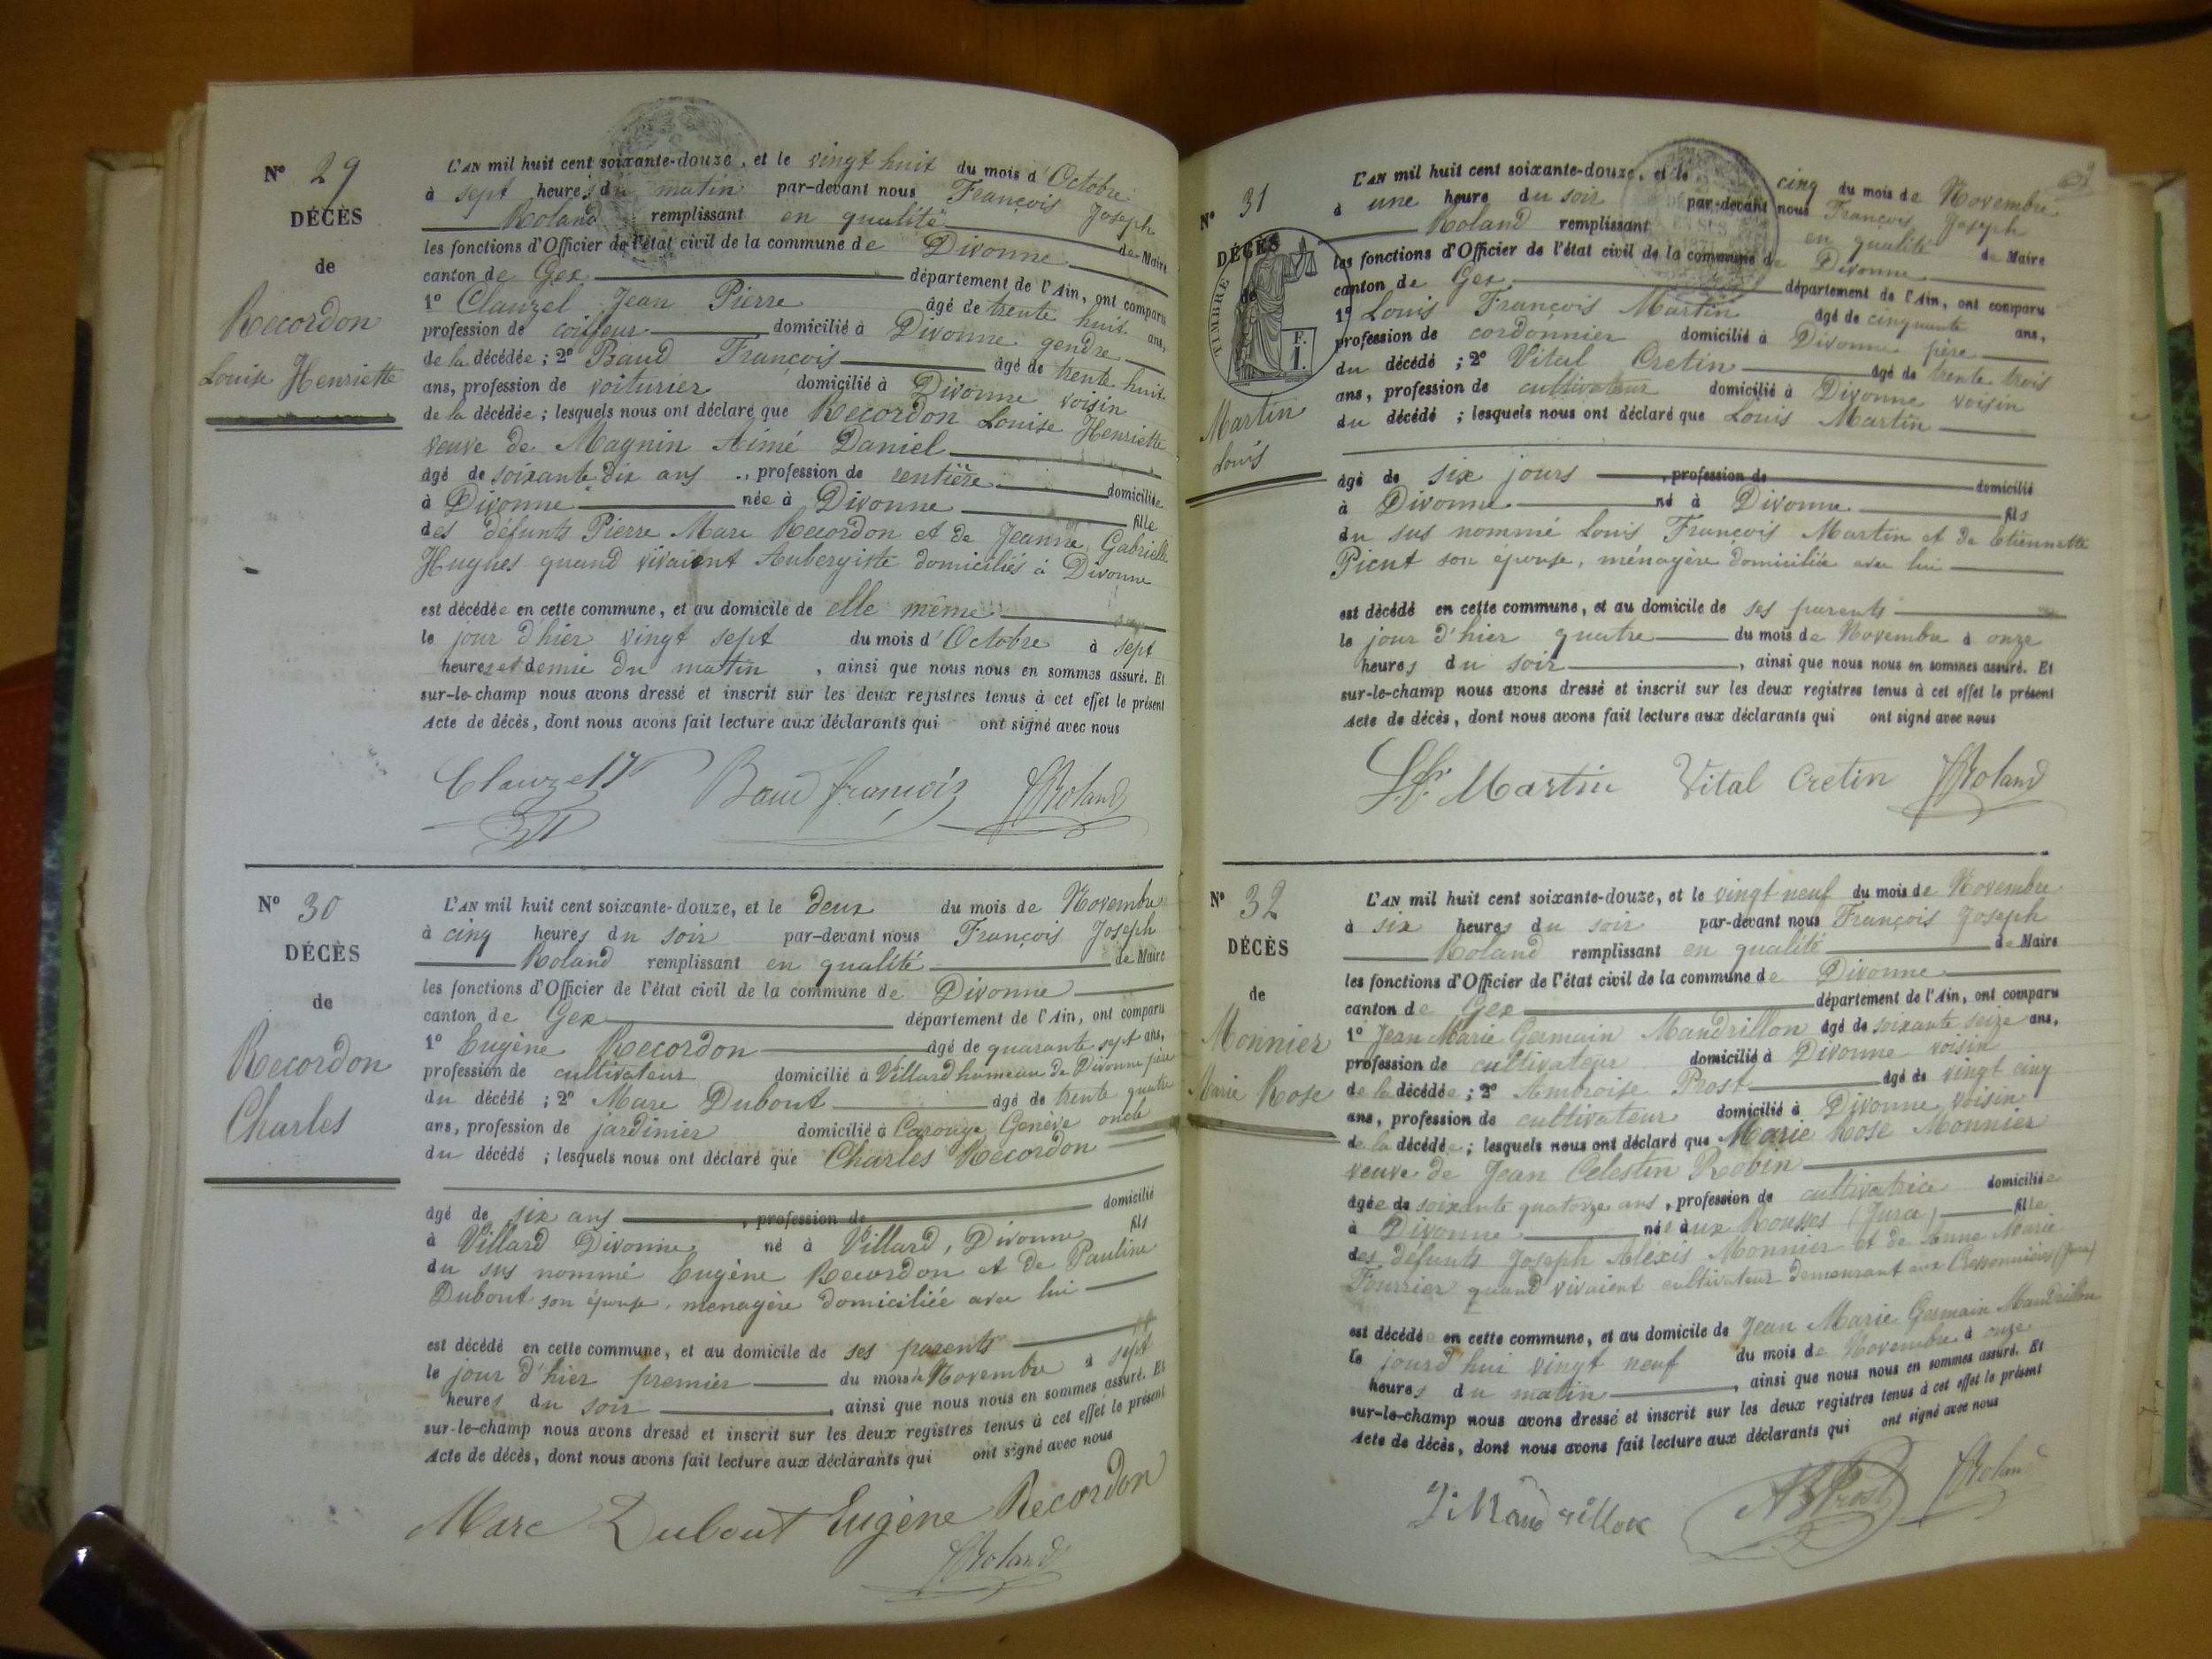 N° 29
DÉCÈS
de
Recordon
Louise Henriette
L'AN mil huit cent soixante-douze, et le vingt huit du mois d'Octobre
à sept heures du matin par-devant nous François Joseph
Roland remplissant en qualité de Maire
les fonctions d'Officier de l'état civil de la commune de Divonne
canton de Gex département de l'Ain, ont comparu
1° Clauzel Jean Pierre âgé de trente huit ans,
profession de coiffeur domicilié à Divonne gendre
de la décédée ; 2° Baud François âgé de trente huit
ans, profession de voiturier domicilié à Divonne voisin
de la décédée ; lesquels nous ont déclaré que Recordon Louise Henriette
veuve de Magnin Aimé Daniel
âgé de soixante dix ans , profession de rentière domiciliée
à Divonne née à Divonne fille
des défunts Pierre Marc Recordon et de Jeanne Gabrielle
Hugues quand vivaient Aubergiste domiciliés à Divonne
est décédée en cette commune, et au domicile de elle même
le jour d'hier vingt sept du mois d'Octobre à sept
heures et demie du matin , ainsi que nous nous en sommes assuré. Et
sur-le-champ nous avons dressé et inscrit sur les deux registres tenus à cet effet le présent
Acte de décès, dont nous avons fait lecture aux déclarants qui ont signé avec nous
Baud françois Roland
N° 30
DÉCÈS
de
Recordon
Charles
L'AN mil huit cent soixante-douze, et le deux du mois de Novembre
à cinq heures du soir par-devant nous François Joseph
Roland remplissant en qualité de Maire
les fonctions d'Officier de l'état civil de la commune de Divonne
canton de Gex département de l'Ain, ont comparu
1° Eugène Recordon âgé de quarante sept ans,
profession de cultivateur domicilié à Villard hameau de Divonne père
du décédé ; 2° Marc Dubout âgé de trente quatre
ans, profession de jardinier domicilié à Carouge Genève oncle
du décédé ; lesquels nous ont déclaré que Charles Recordon
âgé de six ans , profession de domicilié
à Villard Divonne né à Villard, Divonne fils
du sus nommé Eugène Recordon et de Pauline
Dubout son épouse, menagère domiciliée avec lui
est décédé en cette commune, et au domicile de ses parents
le jour d'hier premier du mois de Novembre à sept
heures du soir , ainsi que nous nous en sommes assuré. Et
sur-le-champ nous avons dressé et inscrit sur les deux registres tenus à cet effet le présent
Acte de décès, dont nous avons fait lecture aux déclarants qui ont signé avec nous
Marc Dubout Eugène Recordon
Roland
N° 31
DÉCÈS
de
TIMBRE
F.
1.
Martin
Louis
L'AN mil huit cent soixante-douze, et le cinq du mois de Novembre
à une heure du soir par-devant nous François Joseph
Roland remplissant en qualité de Maire
les fonctions d'Officier de l'état civil de la commune de Divonne
canton de Gex département de l'Ain, ont comparu
1° Louis François Martin âgé de cinquante ans,
profession de cordonnier domicilié à Divonne père
du décédé ; 2° Vital Cretin âgé de trente trois
ans, profession de cultivateur domicilié à Divonne voisin
du décédé ; lesquels nous ont déclaré que Louis Martin
âgé de six jours , profession de domicilié
à Divonne né à Divonne fils
du sus nommé Louis François Martin et de Etiennette
Picut son épouse, ménagère domiciliée avec lui
est décédé en cette commune, et au domicile de ses parents
le jour d'hier quatre du mois de Novembre à onze
heures du soir , ainsi que nous nous en sommes assuré. Et
sur-le-champ nous avons dressé et inscrit sur les deux registres tenus à cet effet le présent
Acte de décès, dont nous avons fait lecture aux déclarants qui ont signé avec nous
Martin Vital Cretin Roland
N° 32
DÉCÈS
de
Monnier
Marie Rose
L'AN mil huit cent soixante-douze, et le vingt neuf du mois de Novembre
à six heures du soir par-devant nous François Joseph
Roland remplissant en qualité de Maire
les fonctions d'Officier de l'état civil de la commune de Divonne
canton de Gex département de l'Ain, ont comparu
1° Jean Marie Germain Mandrillon âgé de soixante seize ans,
profession de cultivateur domicilié à Divonne voisin
de la décédée ; 2° Ambroise Prost âgé de vingt cinq
ans, profession de cultivateur domicilié à Divonne voisin
de la décédée ; lesquels nous ont déclaré que Marie Rose Monnier
veuve de Jean Celestin Robin
âgée de soixante quatorze ans , profession de cultivatrice domiciliée
à Divonne née aux Rousses (Jura) fille
des défunts Joseph Aléxis Monnier et de Anne Marie
Fournier quand vivaient cultivateur demeurant aux (Jura)
est décédée en cette commune, et au domicile de Jean Marie Germain Mandrillon
le jourd'hui vingt neuf du mois de Novembre à onze
heures du matin , ainsi que nous nous en sommes assuré. Et
sur-le-champ nous avons dressé et inscrit sur les deux registres tenus à cet effet le présent
Acte de décès, dont nous avons fait lecture aux déclarants qui ont signé avec nous
Prost Roland